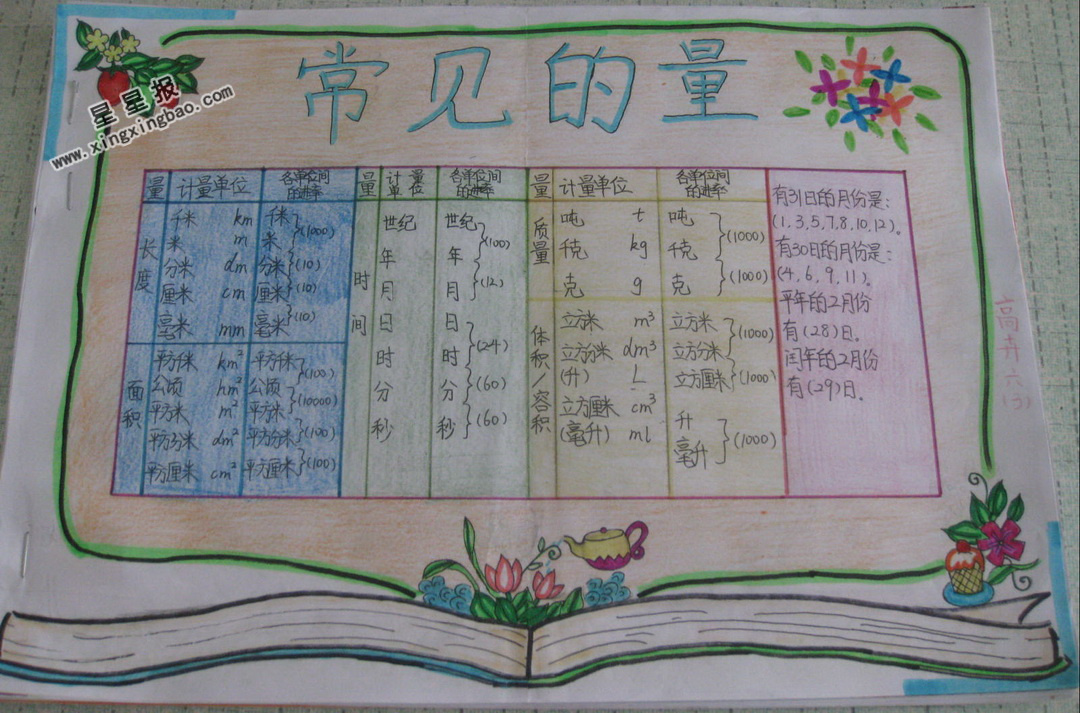 常见的量
星星报
www.xingxingbao.com
量 计量单位 各单位间的进率
长度
千米 km 千米
(1000)
米 m 米
分米 dm 分米
(10)
厘米 cm 厘米
(10)
毫米 mm 毫米
(10)
面积
平方千米 km² 平方千米
(100)
公顷 hm² 公顷
(10000)
平方米 m² 平方米
平方分米 dm² 平方分米
(100)
平方厘米 cm² 平方厘米
(100)
量 计量单位 各单位间的进率
时间
世纪 世纪
(100)
年 年
(12)
月 月
日 日
(24)
时 时
(60)
分 分
(60)
秒 秒
量 计量单位 各单位间的进率
质量
吨 t 吨
(1000)
千克 kg 千克
(1000)
克 g 克
体积/容积
立方米 m³ 立方米
(1000)
立方分米 dm³ 立方分米
(升) L 立方厘米
(1000)
立方厘米 cm³ 升
(毫升) ml 毫升
(1000)
有31日的月份是:
(1,3,5,7,8,10,12)。
有30日的月份是:
(4,6,9,11)。
平年的2月份
有(28)日。
闰年的2月份
有(29)日。